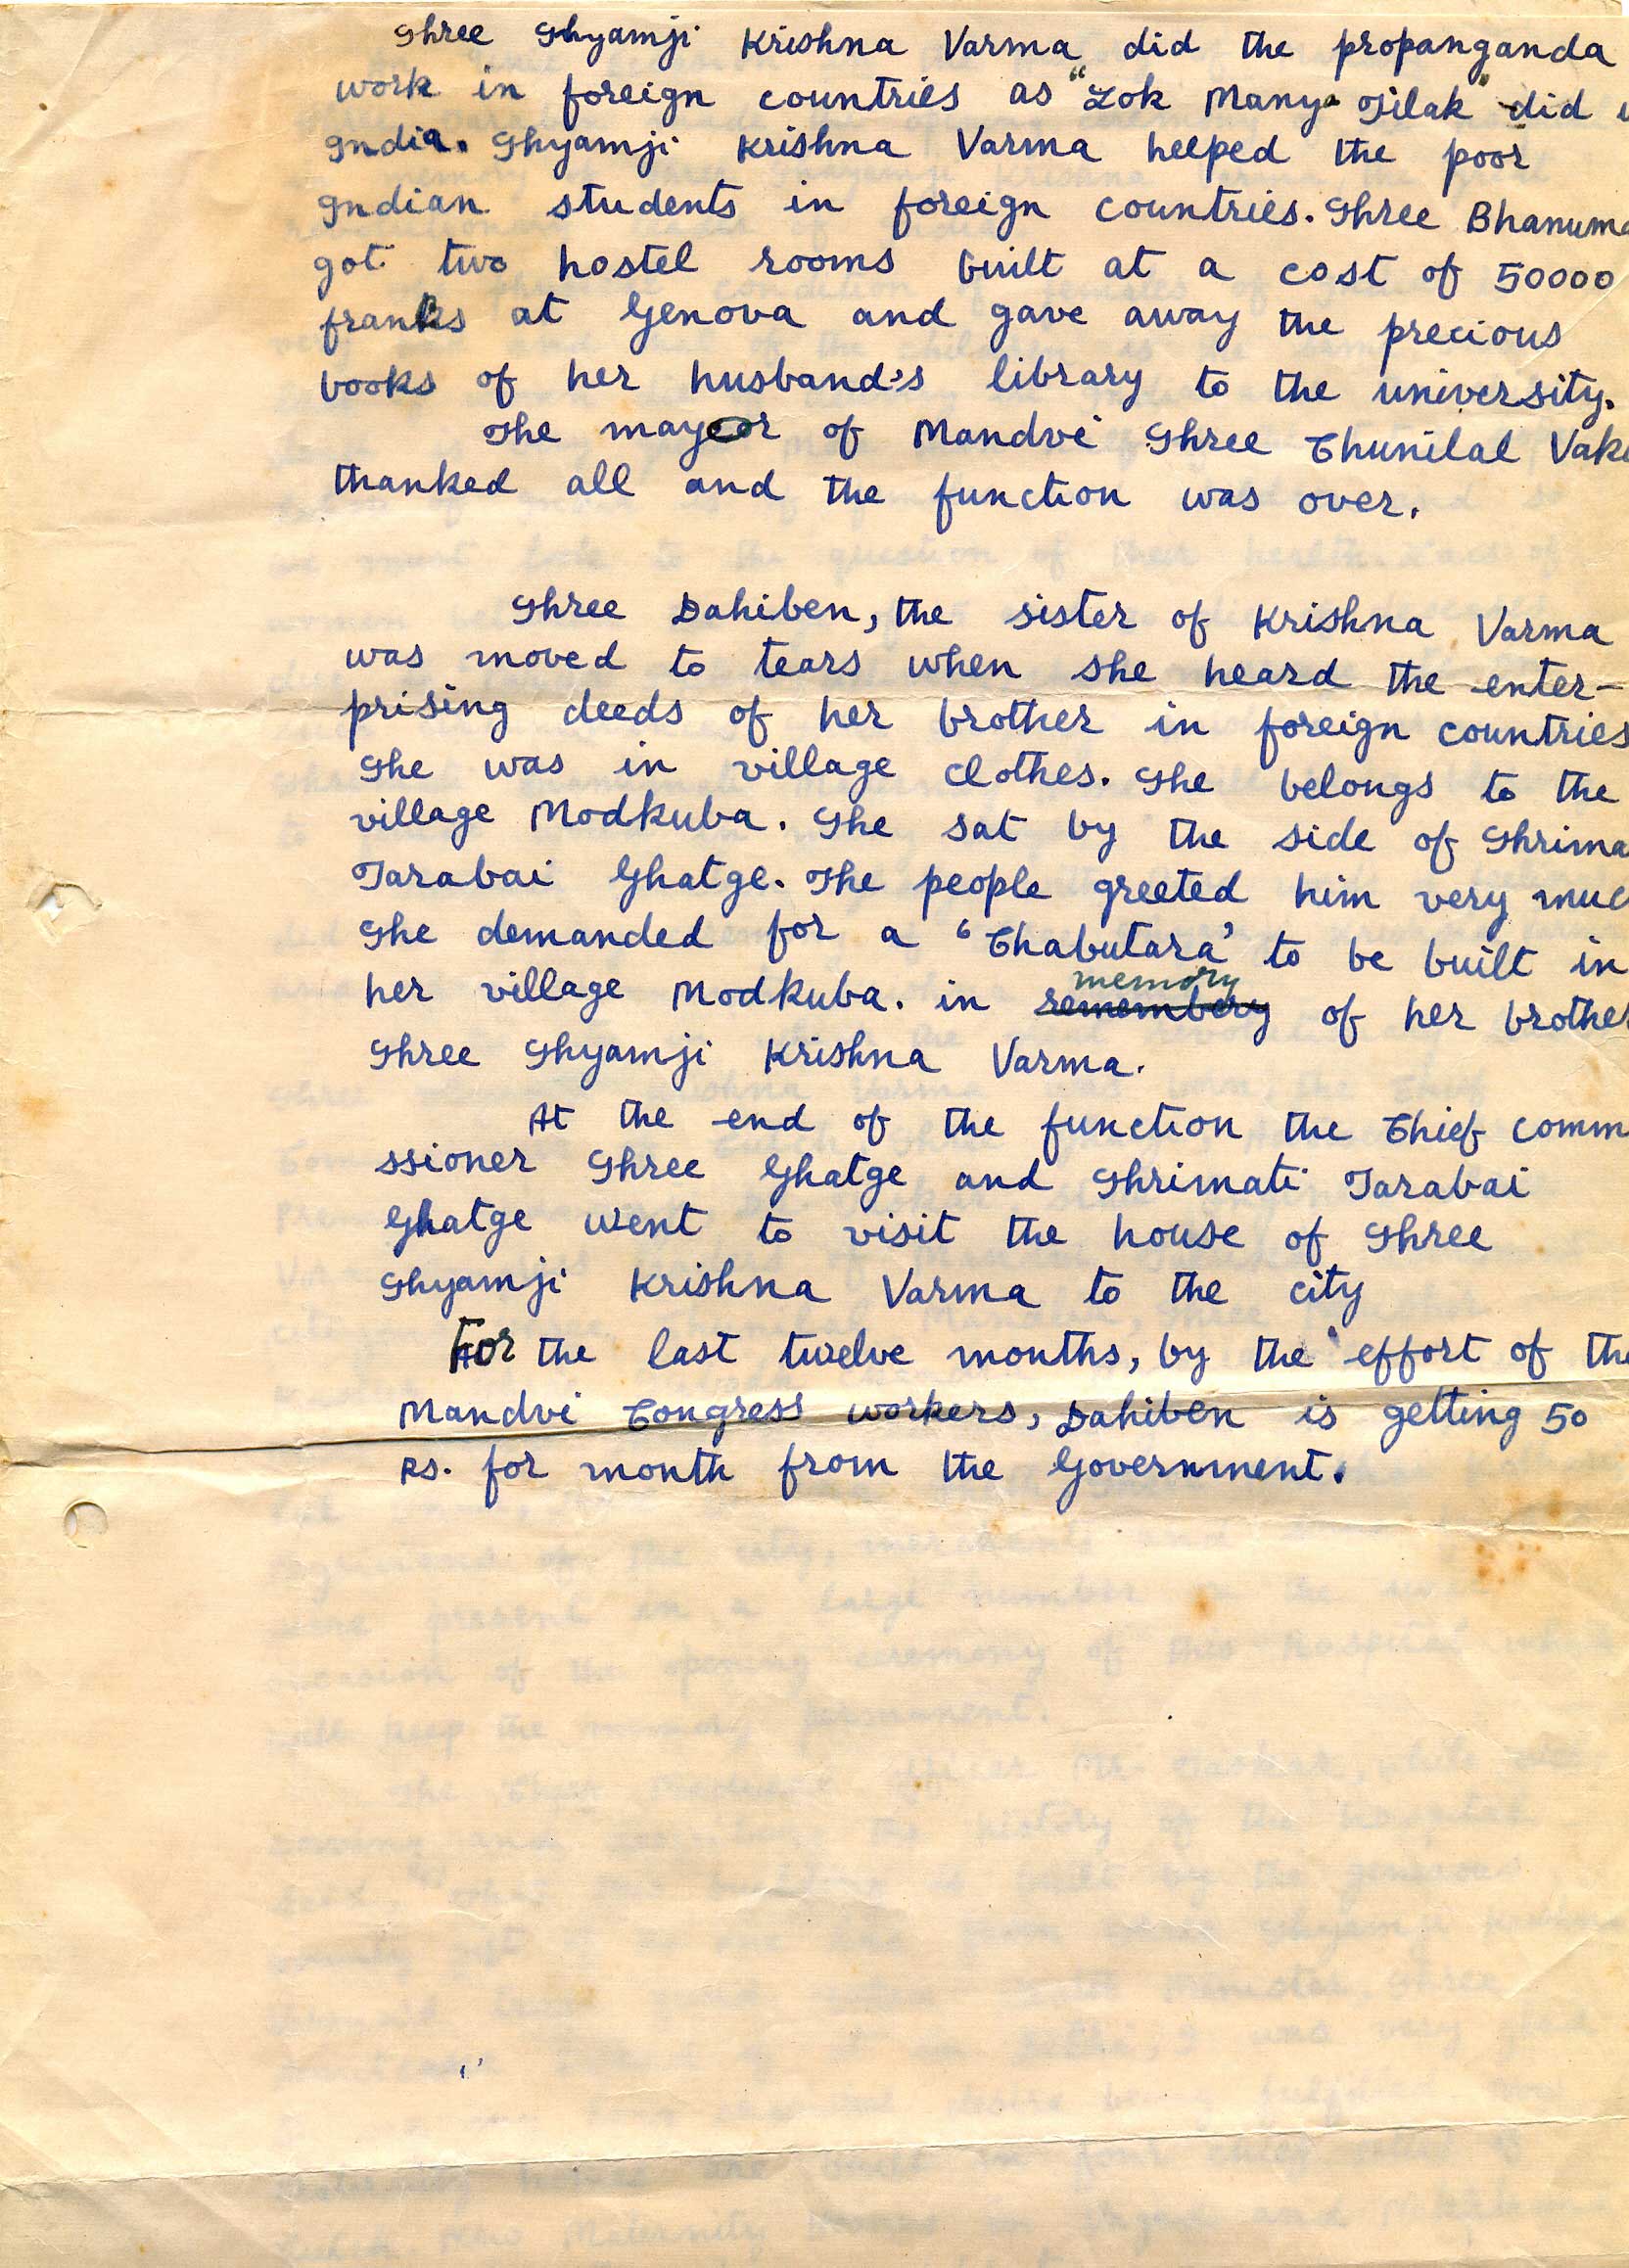 Shree Shyamji Krishna Varma did the propanganda
work in foreign countries as "Lok Manya Tilak" did
India. Shyamji Krishna Varma helped the poor
Indian students in foreign countries. Shree Bhanuma
got two hostel rooms built at a cost of 50000
franks at Genova and gave away the precious
books of her husband's library to the university.
The mayor of Mandvi Shree Chunilal Vak
thanked all and the function was over.
Shree Dahiben, the sister of Krishna Varma
was moved to tears when she heard the enter-
prising deeds of her brother in foreign countries
She was in village clothes. She belongs to the
village Modkuba. She sat by the side of Shrima
Tarabai Ghatge. The people greeted him very muc
She demanded for a 'Chabutara' to be built in
memory
her village Modkuba. in remembery of her brother
Shree Shyamji Krishna Varma.
At the end of the function the Chief comm
ssioner Shree Ghatge and Shrimati Tarabai
Ghatge went to visit the house of Shree
Shyamji Krishna Varma to the city
For the last twelve months, by the effort of the
Mandvi Congress workers, Dahiben is getting 50
Rs. for month from the Government.